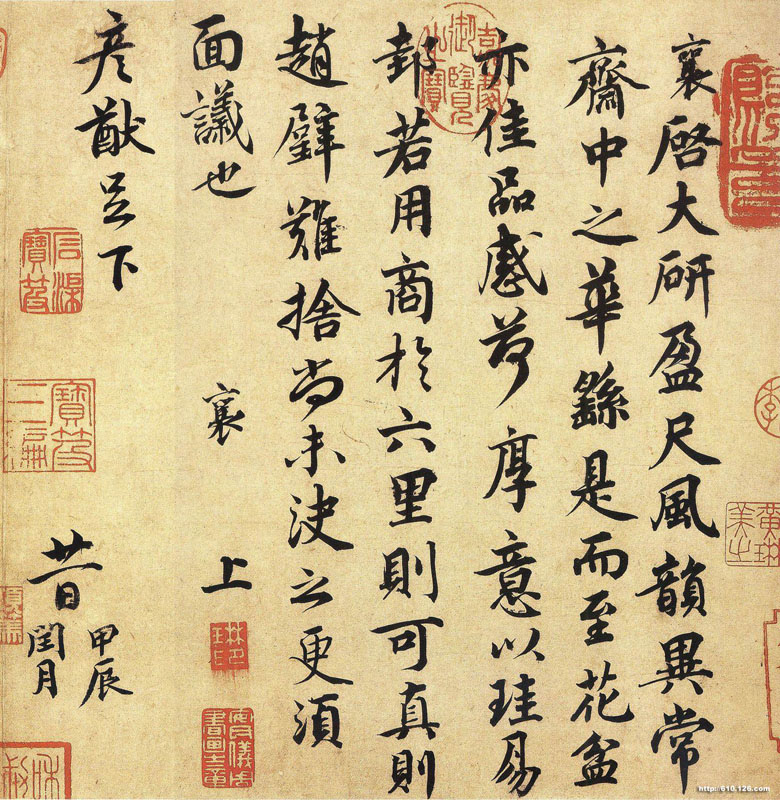 襄啓大研盈尺風韻異常
齋中之華繇是而至花盆
亦佳品感荷厚意以珪易
邽若用商於六里則可真則
趙璧難捨尚未決之更須
面議也
襄上
彥猷足下
廿一日
甲辰
閏月
http://610.126.com